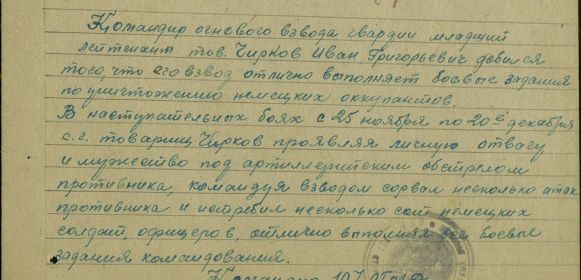 Командир огневого взвода гвардии младший
лейтенант тов. Чирков Иван Григорьевич добился
того, что его взвод отлично выполняет боевые задания
по уничтожению немецких оккупантов.
В наступательных боях с 25 ноября по 20е декабря
с.г. товарищ Чирков проявляя личную отвагу
и мужество под артиллерийским обстрелом
противника, командуя взводом сорвал несколько атак
противника и истребил несколько сот немецких
солдат, офицеров, отлично выполняя все боевые
задания командования.